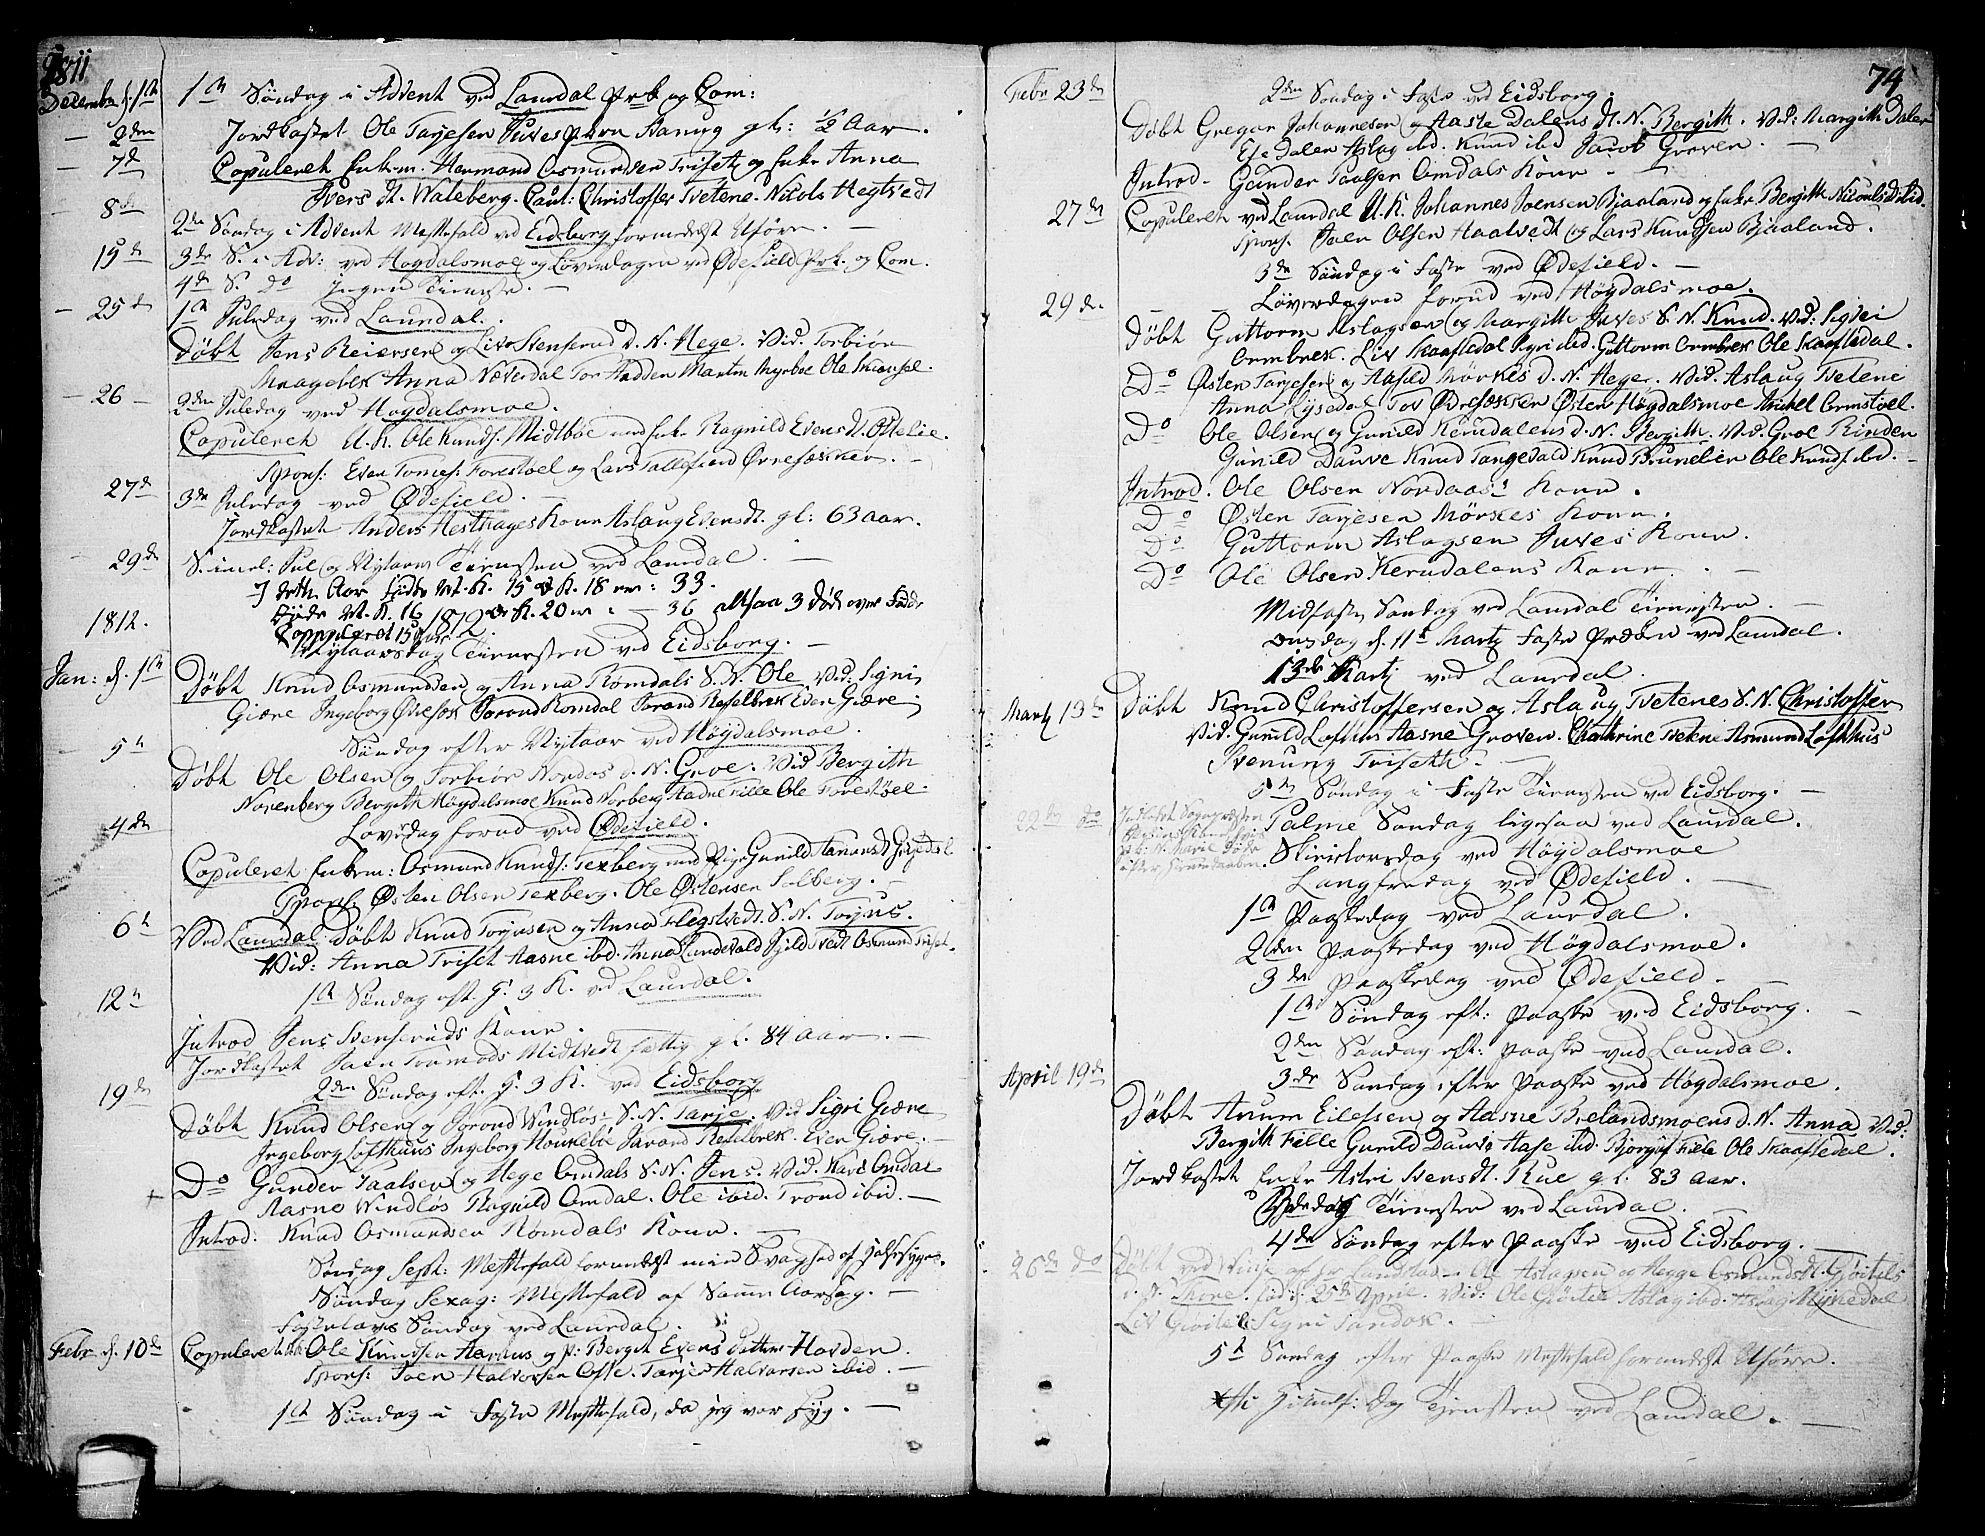 1811
Decemb. d. 1te 1te Søndag i Advent ved Laurdal Prk og Com:
— 2den Jordkastet Ole Tarjesen Juves gl: 1/2 Aar.
— 7de Copuleret Enkem. Hermand Osmundsen Triseth og Enke Anna
Ivers dt. Waleberg. Caut: Christoffer Tvetene. Nicols Hegtvedt
— 8de 2den Søndag i Advent Messefald ved Eidsborg formedelst Uføre. —
15de 3de S. i Adv: ved Høgdalsmoe og Løverdagen ved Ødefield Prk. og Com.
4de S. Do Ingen Tieneste. —
— 25de 1te Juledag ved Laurdal.
Døbt Jens Reiersen og Liv Stensrud d. N. Hege. Vid. Torbiør
Haagebek Anna Næverdal Tor Hadden Martin Myrboe Ole
— 26 — 2den Juledag ved Høgdalsmoe.
Copuleret U. K. Ole Knuds. Midtbøe med Enke Ragnild Evens dt.
Spons: Even Tomes. Forestøel og Lars Tallefsen
27de 3de Juledag ved Ødefield. —
Jordkastet Anders Hesthages Kone Aslaug Evensdt. gl: 63 aar.
29de S. imel: Jul og Nytaar Tienesten ved Laurdal. —
I dette Aar fødte M. K. 15 Q. K. 18 er: 33.
Døde M. K. 16 Q. K. 20 er: — 36 altsaa 3 død over Fødde
Copuleret 15 Par.
1812. 1812
Jan: d. 1te Nytaarsdag Tienesten ved Eidsborg. —
Døbt Knud Osmundsen og Anna Romdals S. N. Ole Vid: Signi
Giære Ingeborg Jorand Romdal Jorand Reselbrek Even Giære
5te Søndag efter Nytaar ved Høgdalsmoe.
Døbt Ole Olsen og Torbiør Nordos d. N. Groe. Vid Bergith
Norenberg Bergith Høgdalsmoe Knud Norberg Aadne Fille Ole Forestøel.
4de Løverdag forud ved Ødefield.
Copuleret Enkem: Osmund Knuds. Texberg med Pige Gunild
Spons: Østen Olsen Texberg. Ole Østensen Solberg. —
6te Ved Laurdal Døbt Knud Torjusen og Anna Flegstvedt. S. N. Torjus.
Vid: Anna Triset Aasne ibd. Anna Lundevald Osmund Triset.
12te 1te Søndag eft. H. 3 K. ved Laurdal.
Introd Jens Stensruds Kone.
Jordkastet Joen Tormods Midtvedt fattig gl. 84 aar. —
19de 2den Søndag eft. H. 3 K. ved Eidsborg
Døbt Knud Olsen og Jorond Vindløs S. N. Tarje. Vid Sigri Giære
Ingeborg Lofthuus Ingeborg Houkebøe Jarand Reselbrek. Even Giære. —
Do Gunder Paalsen og Hege Omdals S. N. Jens. Vid. Kari Omdal
Aasne Vindløs Ragnild Omdal. Ole ibid. Trond ibid. —
Introd: Knud Osmundsen Romdals Kone. —
Søndag Sept: Messefald formedelst min Svaghed af Halsesyge.
Søndag Sexag: Messefald af Samme Aarsag. —
Fastelavns Søndag ved Laurdal.
Febr. d. 10de Copuleret Ole Knudsen Aarhus og P: Bergit Evens datter Hovden.
Spons: Joen Halvorsen Tarjer Halvorsen ibid. —
1te Søndag i Faste Messefald, da jeg var Syg. —
74
Febr 23de 2den Søndag i Faste ved Eidsborg.
Døbt Gregar Johannesen og Aaste Dalens dt. N. Bergith. Vid: Margith Dalen
Dalen Aslag ibd. Knud ibd Jacob Groven. —
Introd. Gunder Paalsen Omdals Kone —
27de Copuleret ved Laurdal U. K. Johannes Joensen Bjaaland og Enke Bergith Nicoulsd. ibid.
Spons. Joen Olsen Haatvedt og Lars Knudsen Bjaaland.
3de Søndag i Faste ved Ødefield. —
29de Løverdagen forud ved Høgdalsmoe.
Døbt Guttorm Aslagsen og Margith Juves S. N. Knud. Vid: Sigrei
Ormbrek. Liv Skaffledal Sigri ibd. Guttorm Ormbrek Ole Skaffledal.
Do Østen Tarjesen og Aasild Mørkes d. N. Hege. Vid. Aslaug Tvetene
Anna Lysedal Tov Østen Høgdalsmoe Michel Ormstøel.
Do Ole Olsen og Gunild Kerndalens d. N. Bergith. Vid. Groe Rinden
Gunild Dauve Knud Tangevald Knud Brunelien Ole Knuds. ibd. —
Introd. Ole Olsen Nordaas Kone.
Do Østen Tarjesen Mørkes Kone.
Do Guttorm Aslagsen Juves Kone.
Do Ole Olsen Kerndalens Kone. —
Midfaste Søndag ved Laurdal Tienesten. —
Onsdag d. 11te Martz Faste Prædken ved Laurdal.
13de Martj ved Laurdal.
Martj 13de Døbt Knud Christoffersen og Aslaug Tvetenes S. N. Christoffer
Vid. Gunild Lofthus Aasne Groven. Chathrine Tvetene Asmund Lofthus
Svenung Triseth. —
5te Søndag i Faste Tienesten ved Eidsborg. —
22de do Palme Søndag ligesaa ved Laurdal.
Skiertorsdag ved Høgdalsmoe
Langfredag ved Ødefield. —
1te Paaskedag ved Laurdal.
2den Paaskedag ved Høgdalsmoe.
3de Paaskedag ved Ødefield. —
1te Søndag eft: Paaske ved Eidsborg. —
2den Søndag eft: Paaske ved Laurdal.
April 19de 3de Søndag efter Paaske ved Høgdalsmoe.
Døbt Anum Eilefsen og Aasne Brelandsmoens d. N. Anna Vid:
Bergith Fille Gunild Dauve Aase ibd. Bjørgüf Fille Ole Skaffledal.
Jordkastet Enke Astri Svensdt. Rue gl. 83 aar.
Bededag Tienesten ved Laurdal.
4de Søndag efter Paaske ved Eidsborg. —
26de do Døbt ved Vinje af Hr Landstad — Ole Aslagsen og Hegge Osmundsdt. Gjøitels
d. N. Thone. 25de April. Vid: Ole Gjøitel Aslag ibd. Aslag
Liv Gjøitel Sigri Sandok. —
5te Søndag efter Paaske Messefald formedelst Uføre.
Chr. Himmelf: Dag Tjenesten ved Laurdal. —